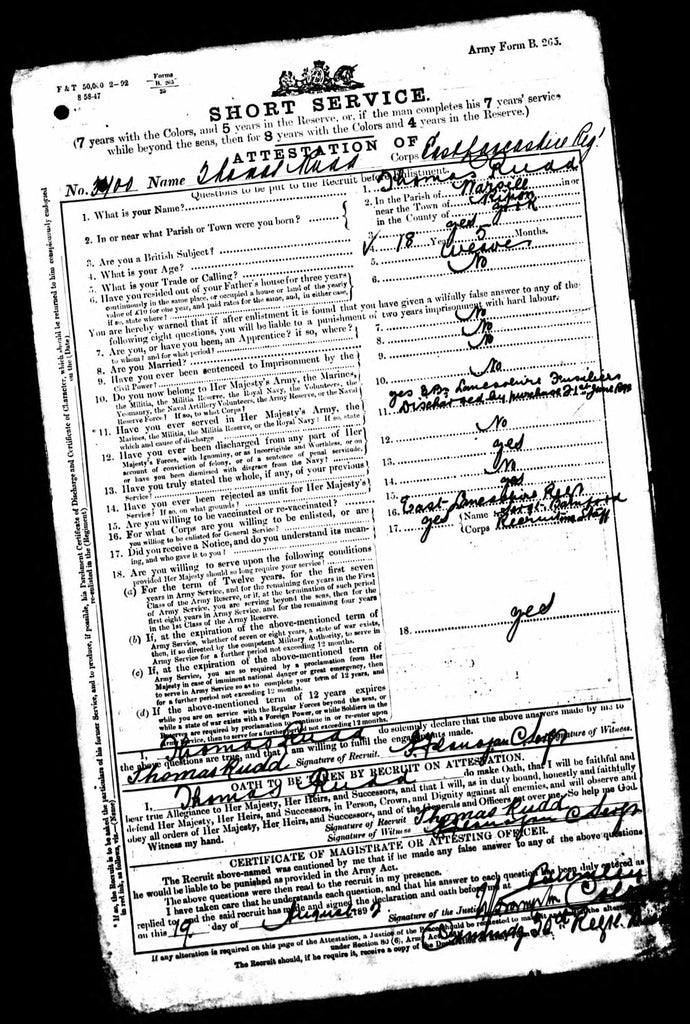 Army Form B. 265.
F & T 50,000 2–92
8 5847
Forms
B. 265
SHORT SERVICE.
(7 years with the Colors, and 5 years in the Reserve, or, if the man completes his 7 years' service
while beyond the seas, then for 8 years with the Colors and 4 years in the Reserve.)
ATTESTATION OF
No. Name Thomas Rudd Corps East Lancashire Reg
Questions to be put to the Recruit before Enlistment.
1. What is your Name? 1. Thomas Rudd
2. In or near what Parish or Town were you born? 2. In the Parish of in or
near the Town of Ripon
in the County of York
3. Are you a British Subject? 3. yes
4. What is your Age? 4. 18 Years 5 Months.
5. What is your Trade or Calling? 5. Weaver
6. Have you resided out of your Father's house for three years 6. No
continuously in the same place, or occupied a house or land of the yearly
value of £10 for one year, and paid rates for the same, and, in either case,
if so, state where?
You are hereby warned that if after enlistment it is found that you have given a wilfully false answer to any of the
following eight questions, you will be liable to a punishment of two years imprisonment with hard labour.
7. Are you, or have you been, an Apprentice? if so, where? 7. No
to whom? and for what period?
8. Are you Married? 8. No
9. Have you ever been sentenced to Imprisonment by the 9. No
Civil Power?
10. Do you now belong to Her Majesty's Army, the Marines, 10. No
the Militia, the Militia Reserve, the Royal Navy, the Volunteers, the
Yeomanry, the Naval Artillery Volunteers, the Army Reserve, or the Naval
Reserve Force? If so, to what Corps?
* 11. Have you ever served in Her Majesty's Army, the 11. yes 3 Bn Lancashire Fusiliers
Marines, the Militia, the Militia Reserve, or the Royal Navy? If so, state Discharged by purchase 21st June
which and cause of discharge
12. Have you ever been discharged from any part of Her 12. No
Majesty's Forces, with Ignominy, or as Incorrigible and Worthless, or on
account of conviction of felony, or of a sentence of penal servitude,
or have you been dismissed with disgrace from the Navy?
13. Have you truly stated the whole, if any, of your previous 13. yes
Service?
14. Have you ever been rejected as unfit for Her Majesty's 14. No
Service? If so, on what grounds?
15. Are you willing to be vaccinated or re-vaccinated? 15. yes
16. For what Corps are you willing to be enlisted, or are 16. East Lancashire Reg
you willing to be enlisted for General Service?
17. Did you receive a Notice, and do you understand its meaning, 17. yes Name Sergt
and who gave it to you? Corps Recruiting Staff
18. Are you willing to serve upon the following conditions
provided Her Majesty should so long require your service?
(a) For the term of Twelve years, for the first seven
years in Army Service, and for the remaining five years in the First
Class of the Army Reserve, or if, at the termination of such period
of Army Service, you are serving beyond the seas, then for the
first eight years in Army Service, and for the remaining four years
in the 1st Class of the Army Reserve.
(b) If, at the expiration of the above-mentioned term of
Army Service, whether of seven or eight years, a state of war exists,
then, if so directed by the competent Military Authority, to serve in
Army Service for a further period not exceeding 12 months.
(c) If, at the expiration of the above-mentioned term of
Army Service, you are so required by a proclamation from Her
Majesty in case of imminent national danger or great emergency, then
to serve in Army Service so as to complete your term of 12 years, and
for a further period not exceeding 12 months.
18. yes
(d) If the above-mentioned term of 12 years expires
while you are on service with the Regular Forces beyond the seas, or
while a state of war exists with a Foreign Power, or while Soldiers in the
Reserve are required by proclamation to continue in or re-enter upon
Army Service, then to serve for a further period not exceeding 12 months.
I, Thomas Rudd do solemnly declare that the above answers made by me to
the above questions are true, and that I am willing to fulfil the engagements made.
Thomas Rudd Signature of Recruit. Signature of Witness.
OATH TO BE TAKEN BY RECRUIT ON ATTESTATION.
I, Thomas Rudd do make Oath, that I will be faithful and
bear true Allegiance to Her Majesty, Her Heirs, and Successors, and that I will, as in duty bound, honestly and faithfully
defend Her Majesty, Her Heirs, and Successors, in Person, Crown, and Dignity against all enemies, and will observe and
obey all orders of Her Majesty, Her Heirs, and Successors, and of the Generals and Officers set over me. So help me God.
Witness my hand. Signature of Recruit Thomas Rudd
Signature of Witness
CERTIFICATE OF MAGISTRATE OR ATTESTING OFFICER.
The Recruit above-named was cautioned by me that if he made any false answer to any of the above questions
he would be liable to be punished as provided in the Army Act.
The above questions were then read to the recruit in my presence.
I have taken care that he understands each question, and that his answer to each question has been duly entered as
replied to, and the said recruit has made and signed the declaration and oath before me at Burnley
on this 19 day of August 189
Signature of the Justice
If any alteration is required on this page of the Attestation, a Justice of the Peace should be requested to make
under Section 80 (6), Army Act.
The Recruit should, if he require it, receive a copy of the
* If so, the Recruit is to be asked the particulars of his former Service, and to produce, if possible, his Parchment Certificate of Discharge and Certificate of Character, which should be returned to him conspicuously endorsed
in red ink, as follows, viz.—(Name) re-enlisted in the (Regiment) on the (Date)